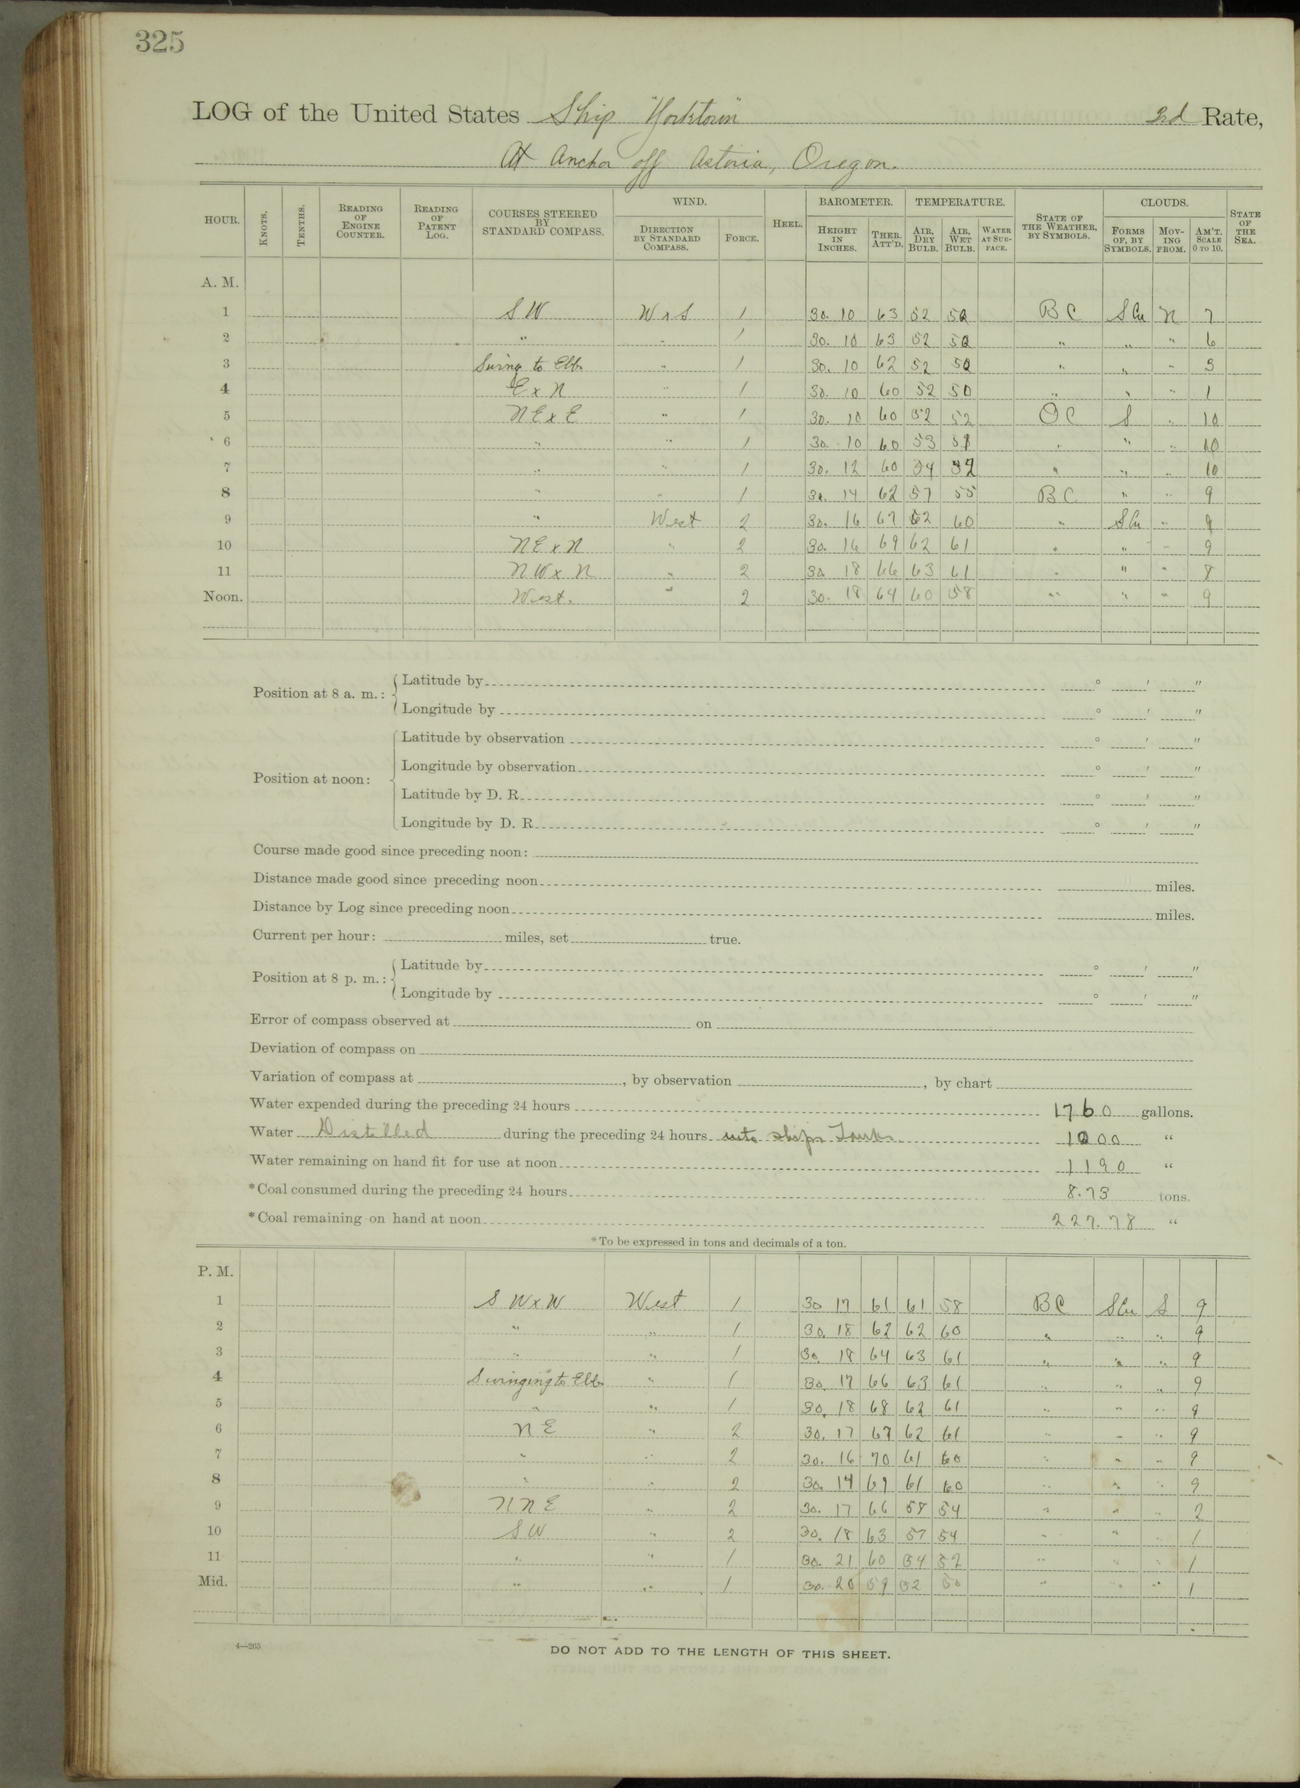 325
LOG of the United States Ship "Yorktown" 3rd Rate,
At Anchor off Astoria, Oregon.
HOUR. KNOTS. TENTHS. READING OF ENGINE COUNTER. READING OF PATENT LOG. COURSES STEERED BY STANDARD COMPASS. WIND. DIRECTION BY STANDARD COMPASS. FORCE. HEEL. BAROMETER. HEIGHT IN INCHES. THER. ATT'D. TEMPERATURE. AIR, DRY BULB. AIR, WET BULB. WATER AT SURFACE. STATE OF THE WEATHER, BY SYMBOLS. CLOUDS. FORMS OF, BY SYMBOLS. MOVING FROM. AM'T. SCALE 0 TO 10. STATE OF THE SEA.
A. M.
1 SW W x S 1 30. 10 63 52 50 BC SCu N 7
2 " " 1 30. 10 63 52 50 " " " 6
3 Swing to Ebb " 1 30. 10 62 52 50 " " " 3
4 E x N " 1 30. 10 60 52 50 " " " 1
5 NE x E " 1 30. 10 60 52 52 OC S " 10
6 " " 1 30. 10 60 53 51 " " " 10
7 " " 1 30. 12 60 54 52 " " " 10
8 " " 1 30. 14 62 57 55 BC " " 9
9 " West 2 30. 16 67 62 60 " SCu " 9
10 NE x N " 2 30. 16 69 62 61 " " " 9
11 NW x N " 2 30 18 66 63 61 " " " 8
Noon. West. " 2 30. 18 64 60 58 " " " 9
Position at 8 a. m.: Latitude by ° ′ ″
Longitude by ° ′ ″
Position at noon: Latitude by observation ° ′ ″
Longitude by observation ° ′ ″
Latitude by D. R. ° ′ ″
Longitude by D. R. ° ′ ″
Course made good since preceding noon:
Distance made good since preceding noon miles.
Distance by Log since preceding noon miles.
Current per hour: miles, set true.
Position at 8 p. m.: Latitude by ° ′ ″
Longitude by ° ′ ″
Error of compass observed at on
Deviation of compass on
Variation of compass at , by observation , by chart
Water expended during the preceding 24 hours 1760 gallons.
Water Distilled during the preceding 24 hours into ships Tanks 1000 "
Water remaining on hand fit for use at noon 1190 "
*Coal consumed during the preceding 24 hours 8.73 tons.
*Coal remaining on hand at noon 227.78 "
*To be expressed in tons and decimals of a ton.
P. M.
1 SW x W West 1 30 17 61 61 58 BC SCu S 9
2 " " 1 30. 18 62 62 60 " " " 9
3 " " 1 30. 18 64 63 61 " " " 9
4 Swinging to Ebb " 1 30. 17 66 63 61 " " " 9
5 " " 1 30. 18 68 62 61 " " " 9
6 NE " 2 30. 17 67 62 61 " " " 9
7 " " 2 30. 16 70 61 60 " " " 9
8 " " 2 30. 14 69 61 60 " " " 9
9 NNE " 2 30. 17 66 58 54 " " " 2
10 SW " 2 30. 18 63 57 54 " " " 1
11 " " 1 30. 21 60 54 52 " " " 1
Mid. " " 1 30. 20 59 52 50 " " " 1
4—265
DO NOT ADD TO THE LENGTH OF THIS SHEET.